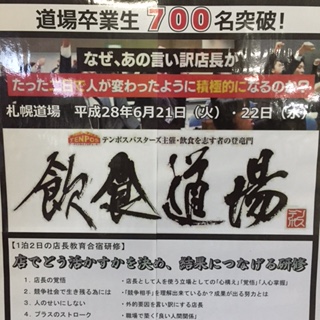 道場卒業生700名突破!
なぜ、あの言い訳店長が
たった二日で人が変わったように積極的になるのか?
札幌道場 平成28年6月21日(火)・22日(水)
TENPOS テンポスバスターズ主催・飲食を志す者の登竜門
飲食道場
テンポス
【1泊2日の店長教育合宿研修】
店でどう活かすかを決め、結果につなげる研修
1. 店長の覚悟 - 店長として人を使う立場としての「心構え」「覚悟」「人心掌握」
2. 競争社会で生き残る為には - 「競争相手」を理解出来ているか?成果が出る努力とは
3. 人のせいにしない - 外的要因を言い訳にする店長
4. プラスのストローク - 職場で築く「良い人間関係」